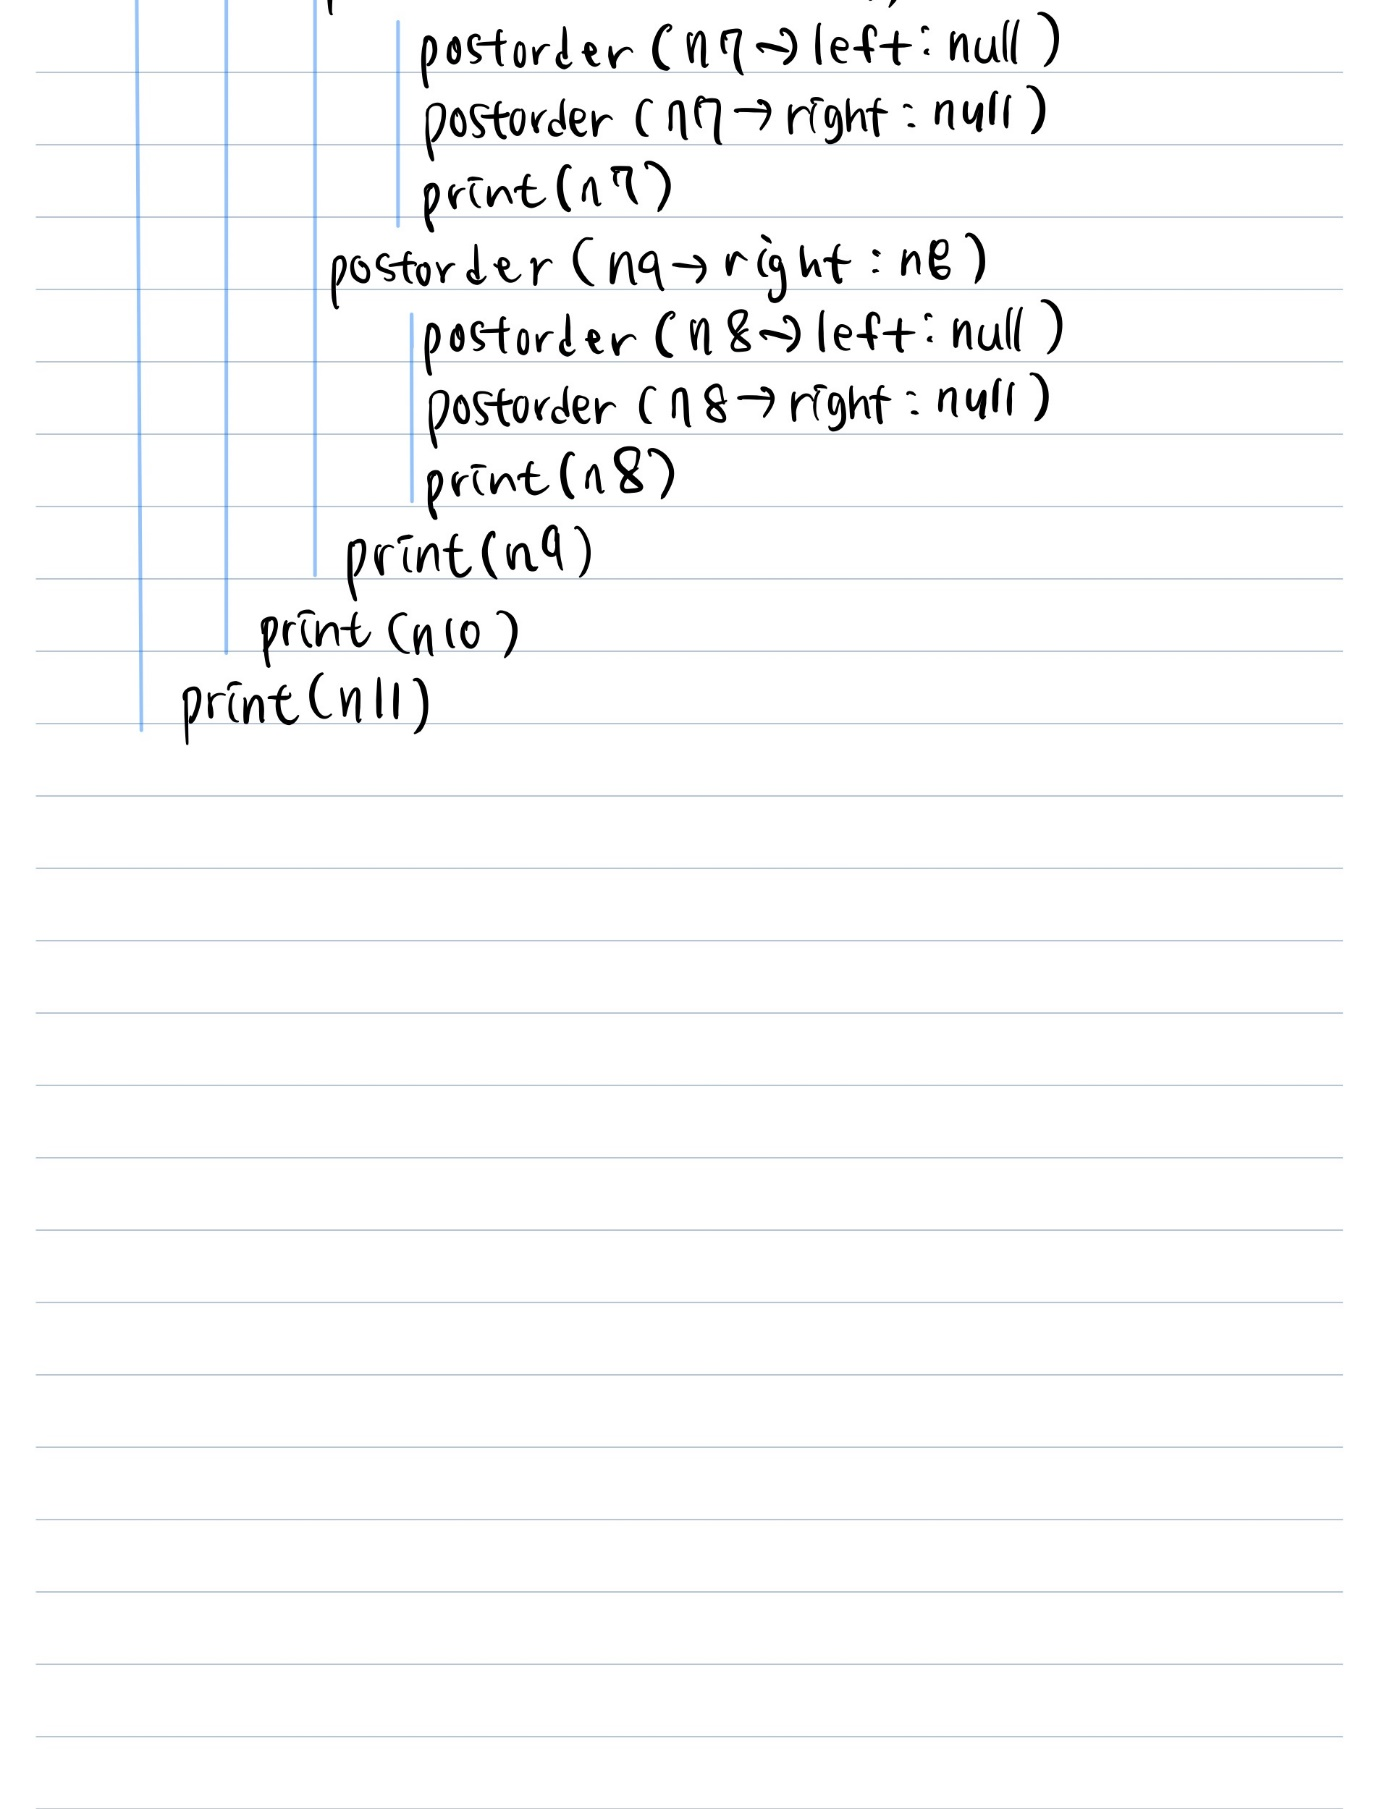 postorder (n7→left: null)
postorder (n7→right: null)
print(n7)
postorder (n9→right: n8)
postorder (n8→left: null)
postorder (n8→right: null)
print(n8)
print(n9)
print (n10)
print(n11)